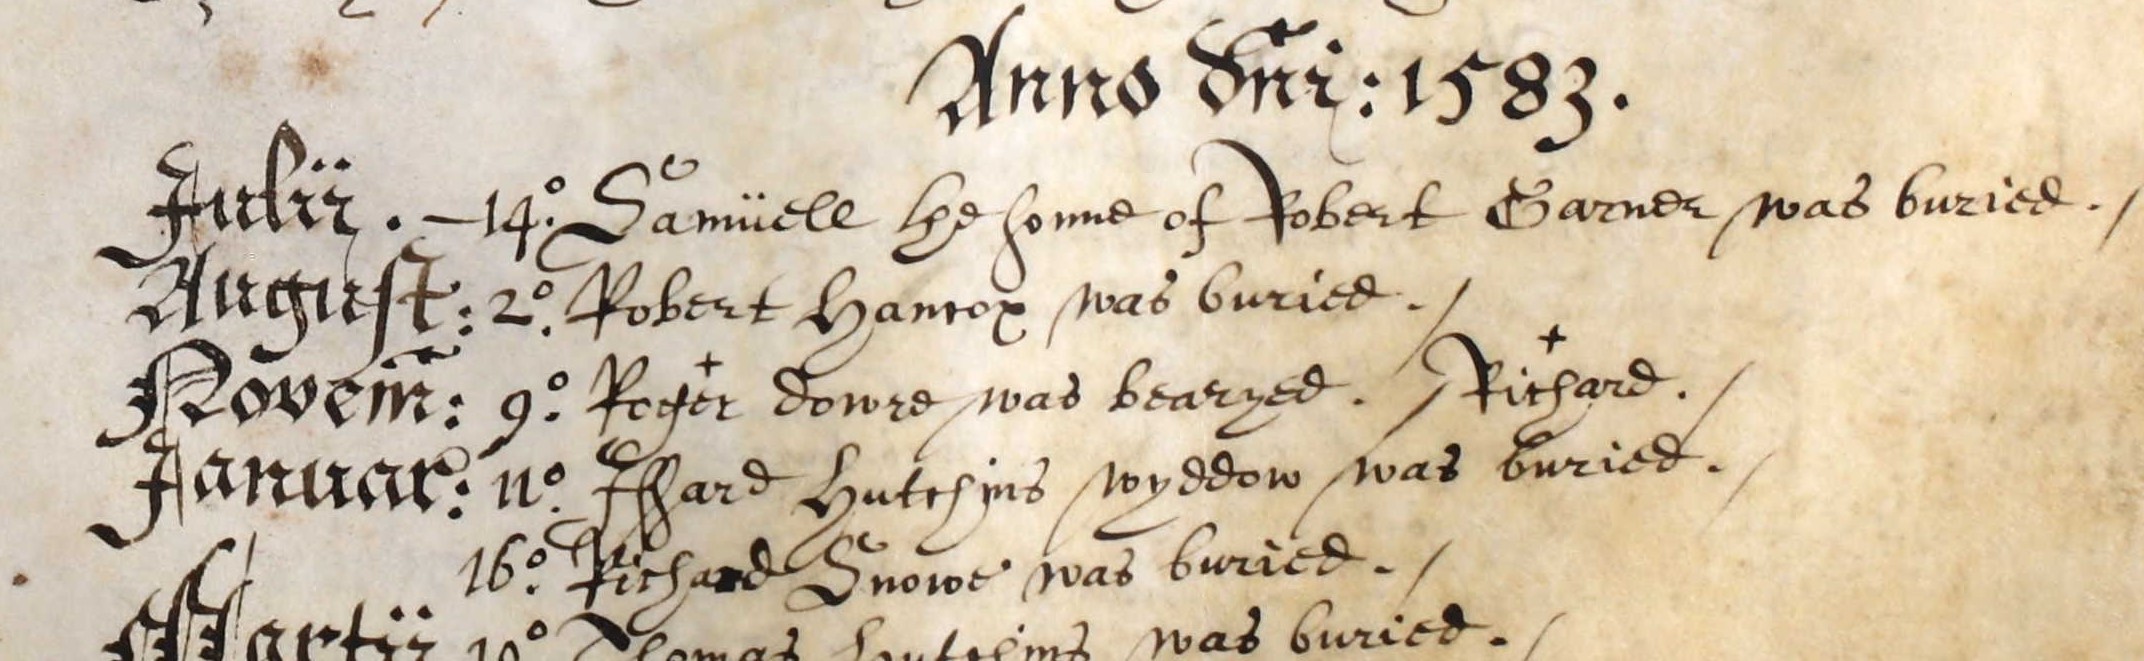 Anno Dni: 1583.
Julii. - 14o: Samuell the sonne of Robert Garner was buried. /
August: 2o. Robert Hancox was buried. /
Novem: 9o: Roger + dowre was bearyed. / + Richard. /
Januar: 11o. Hutchins wyddow was buried. /
16o. Richard Snowe was buried. /
Martii Thomas Hutchins was buried. /